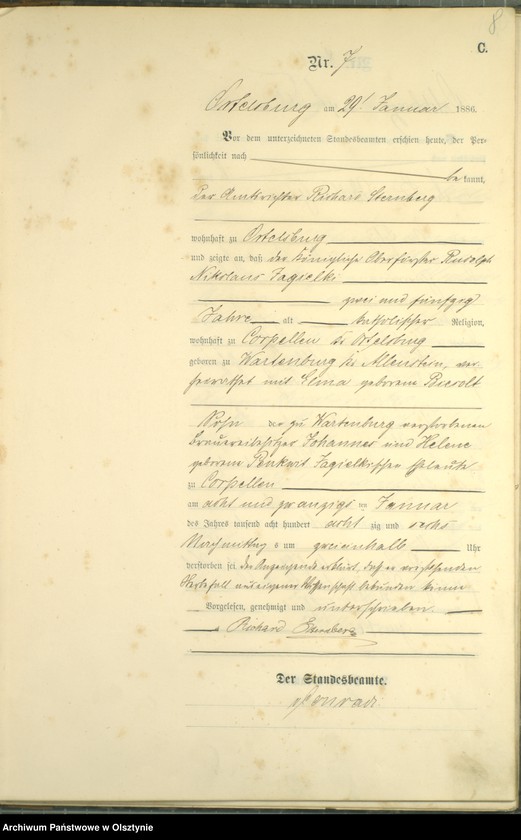 8
C.
Nr. 7
Ortelsburg am 29. Januar 1886.
Vor dem unterzeichneten Standesbeamten erschien heute, der Per-
sönlichkeit nach
bekannt,
der Amtsrichter Richard Sternberg
wohnhaft zu Ortelsburg
und zeigte an, daß der Königliche Oberförster Rudolph
Nikolaus Jagielki
zwei und fünfzig
Jahre alt katholischer Religion,
wohnhaft zu Corpellen bei Ortelsburg
geboren zu Wartenburg bei Allenstein, ver-
heirathet mit geborene
Sohn der zu Wartenburg verstorbenen
Brauereibesitzer Johannes und Helene
geborene Jagielkischen Eheleute
zu Corpellen
am acht und zwanzigsten Januar
des Jahres tausend acht hundert achtzig und sechs
Nachmittags um zweieinhalb Uhr
verstorben sei. Der Anzeigende erklärt, daß er vorstehenden
Sterbefall aus eigener Wissenschaft bekunden könne
Vorgelesen, genehmigt und unterschrieben.
Richard Sternberg
Der Standesbeamte.
Conradi
Archiwum Państwowe w Olsztynie